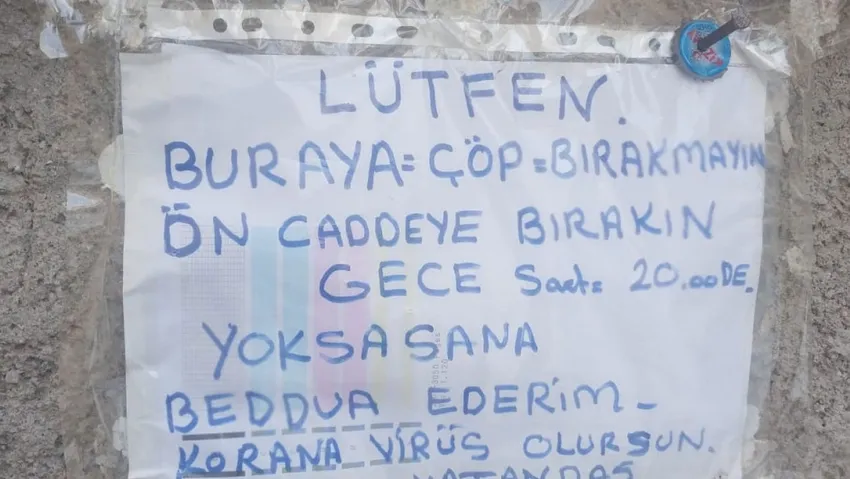 LÜTFEN.
BURAYA= ÇÖP =BIRAKMAYIN
ÖN CADDEYE BIRAKIN
GECE Saat= 20.00 DE.
YOKSA SANA
BEDDUA EDERİM-
KORANA VİRÜS OLURSUN.
VATANDAŞ